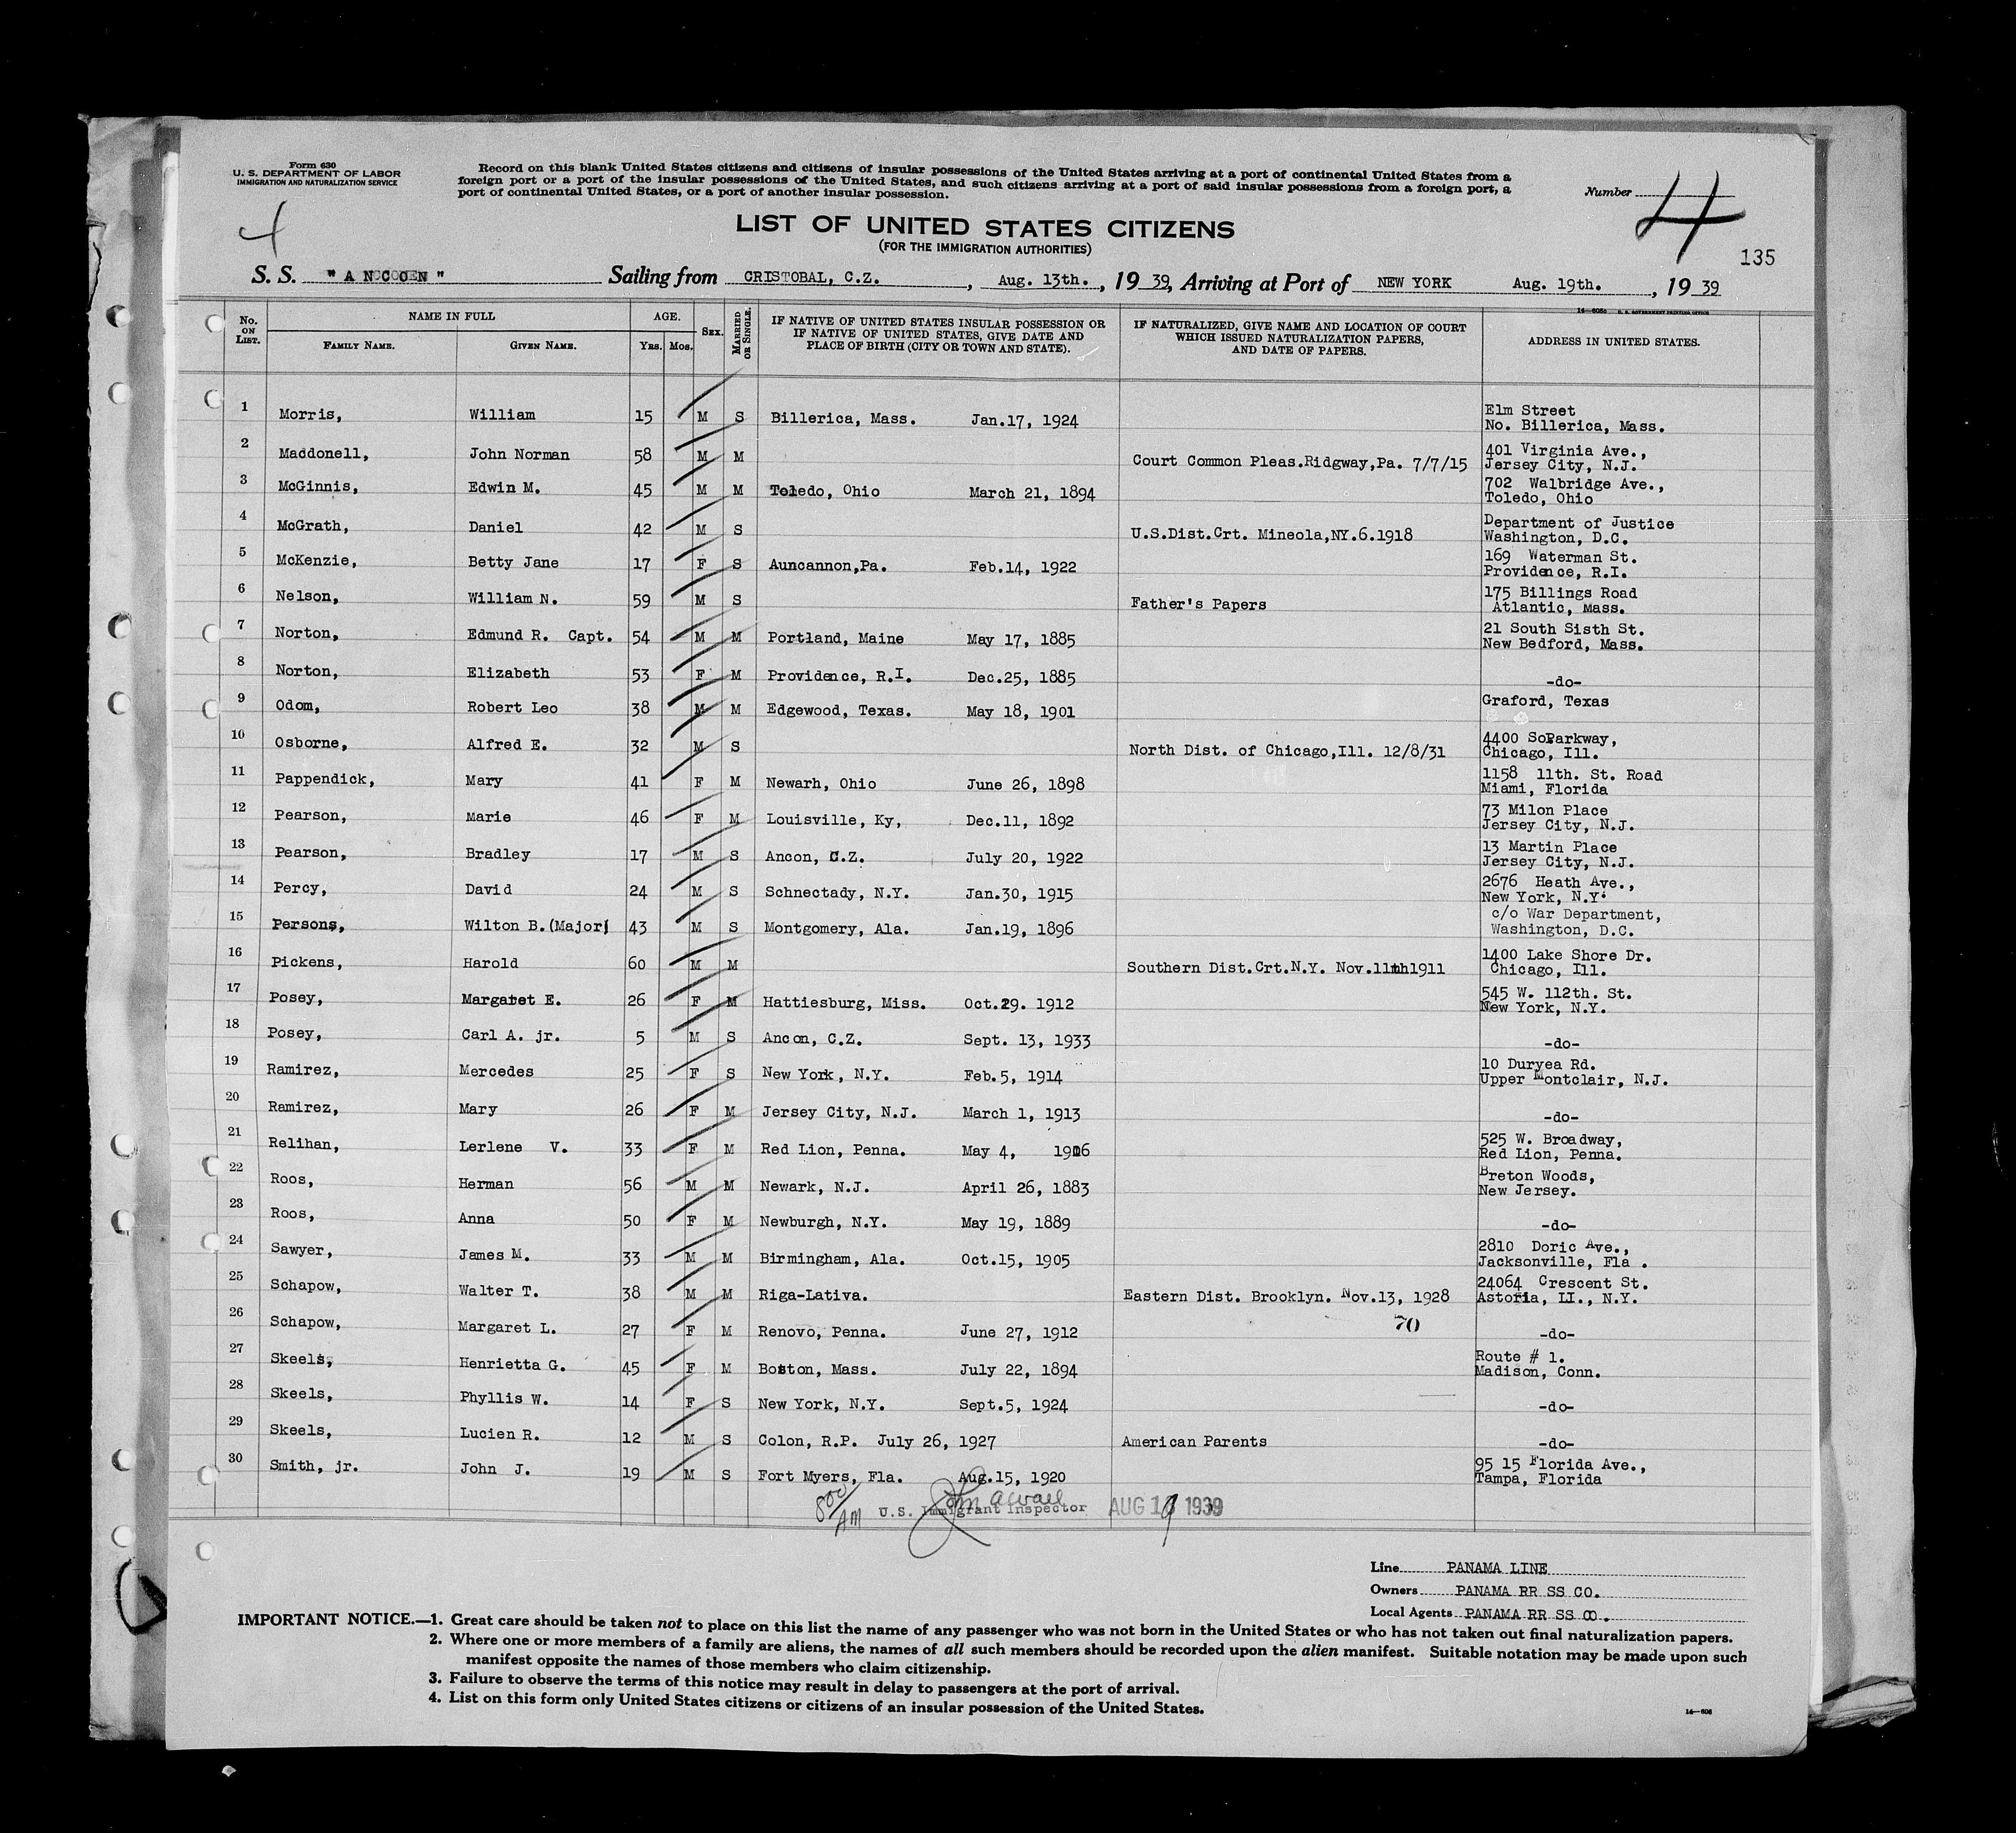 Form 630
U. S. DEPARTMENT OF LABOR
IMMIGRATION AND NATURALIZATION SERVICE
Record on this blank United States citizens and citizens of insular possessions of the United States arriving at a port of continental United States from a
foreign port or a port of the insular possessions of the United States, and such citizens arriving at a port of said insular possessions from a foreign port, a
port of continental United States, or a port of another insular possession.
Number 4
4
135
LIST OF UNITED STATES CITIZENS
(FOR THE IMMIGRATION AUTHORITIES)
S. S. Sailing from CRISTOBAL, C.Z. , Aug. 13th. , 19 39, Arriving at Port of NEW YORK Aug. 19th. , 19 39
No. ON LIST. NAME IN FULL FAMILY NAME. GIVEN NAME. AGE. YRS. MOS. SEX. MARRIED OR SINGLE. IF NATIVE OF UNITED STATES INSULAR POSSESSION OR IF NATIVE OF UNITED STATES, GIVE DATE AND PLACE OF BIRTH (CITY OR TOWN AND STATE). IF NATURALIZED, GIVE NAME AND LOCATION OF COURT WHICH ISSUED NATURALIZATION PAPERS, AND DATE OF PAPERS. ADDRESS IN UNITED STATES.
1 Morris, William 15 M S Billerica, Mass. Jan.17, 1924 Elm Street
No. Billerica, Mass.
2 Macdonell, John Norman 58 M M Court Common Pleas.Ridgway,Pa. 7/7/15 401 Virginia Ave.,
Jersey City, N.J.
3 McGinnis, Edwin M. 45 M M Toledo, Ohio March 21, 1894 702 Walbridge Ave.,
Toledo, Ohio
4 McGrath, Daniel 42 M S U.S.Dist.Crt. Mineola,NY.6.1918 Department of Justice
Washington, D.C.
5 McKenzie, Betty Jane 17 F S Auncannon,Pa. Feb.14, 1922 169 Waterman St.
Providence, R.I.
6 Nelson, William N. 59 M S Father's Papers 175 Billings Road
Atlantic, Mass.
7 Norton, Edmund R. Capt. 54 M M Portland, Maine May 17, 1885 21 South Sisth St.
New Bedford, Mass.
8 Norton, Elizabeth 53 F M Providence, R.I. Dec.25, 1885 -do-
9 Odom, Robert Leo 38 M M Edgewood, Texas. May 18, 1901 Graford, Texas
10 Osborne, Alfred E. 32 M S North Dist. of Chicago,Ill. 12/8/31 4400 SoParkway,
Chicago, Ill.
11 Pappendick, Mary 41 F M Newarh, Ohio June 26, 1898 1158 11th. St. Road
Miami, Florida
12 Pearson, Marie 46 F M Louisville, Ky, Dec.11, 1892 73 Milon Place
Jersey City, N.J.
13 Pearson, Bradley 17 M S Ancon, C.Z. July 20, 1922 13 Martin Place
Jersey City, N.J.
14 Percy, David 24 M S Schnectady, N.Y. Jan.30, 1915 2676 Heath Ave.,
New York, N.Y.
15 Persons, Wilton B.(Major) 43 M S Montgomery, Ala. Jan.19, 1896 c/o War Department,
Washington, D.C.
16 Pickens, Harold 60 M M Southern Dist.Crt.N.Y. Nov.11th1911 1400 Lake Shore Dr.
Chicago, Ill.
17 Posey, Margaret E. 26 F M Hattiesburg, Miss. Oct.29. 1912 545 W. 112th. St.
New York, N.Y.
18 Posey, Carl A. jr. 5 M S Ancon, C.Z. Sept. 13, 1933 -do-
19 Ramirez, Mercedes 25 F S New York, N.Y. Feb.5, 1914 10 Duryea Rd.
Upper Montclair, N.J.
20 Ramirez, Mary 26 F M Jersey City, N.J. March 1, 1913 -do-
21 Relihan, Lerlene V. 33 F M Red Lion, Penna. May 4, 525 W. Broadway,
Red Lion, Penna.
22 Roos, Herman 56 M M Newark, N.J. April 26, 1883 Breton Woods,
New Jersey.
23 Roos, Anna 50 F M Newburgh, N.Y. May 19, 1889 -do-
24 Sawyer, James M. 33 M M Birmingham, Ala. Oct.15, 1905 2810 Doric Ave.,
Jacksonville, Fla .
25 Schapow, Walter T. 38 M M Riga-Lativa. Eastern Dist. Brooklyn. Nov.13, 1928 24064 Crescent St.
Astoria, LI., N.Y.
70
26 Schapow, Margaret L. 27 F M Renovo, Penna. June 27, 1912 -do-
27 Skeels, Henrietta G. 45 F M Boston, Mass. July 22, 1894 Route # 1.
Madison, Conn.
28 Skeels, Phyllis W. 14 F S New York, N.Y. Sept.5, 1924 -do-
29 Skeels, Lucien R. 12 M S Colon, R.P. July 26, 1927 American Parents -do-
30 Smith, jr. John J. 19 M S Fort Myers, Fla. Aug.15, 1920 95 15 Florida Ave.,
Tampa, Florida
800/AM U.S. Immigrant Inspector AUG 19 1939
Line PANAMA LINE
Owners PANAMA RR SS CO.
Local Agents PANAMA RR SS CO.
IMPORTANT NOTICE.—1. Great care should be taken not to place on this list the name of any passenger who was not born in the United States or who has not taken out final naturalization papers.
2. Where one or more members of a family are aliens, the names of all such members should be recorded upon the alien manifest. Suitable notation may be made upon such
manifest opposite the names of those members who claim citizenship.
3. Failure to observe the terms of this notice may result in delay to passengers at the port of arrival.
4. List on this form only United States citizens or citizens of an insular possession of the United States.
14—606